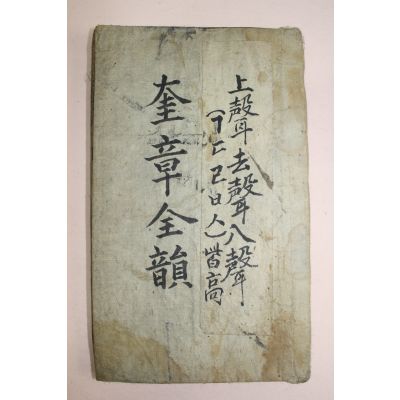 上聲去聲八聲
(ㄱㄷㄹㅂㅅ)皆高
奎章全韻